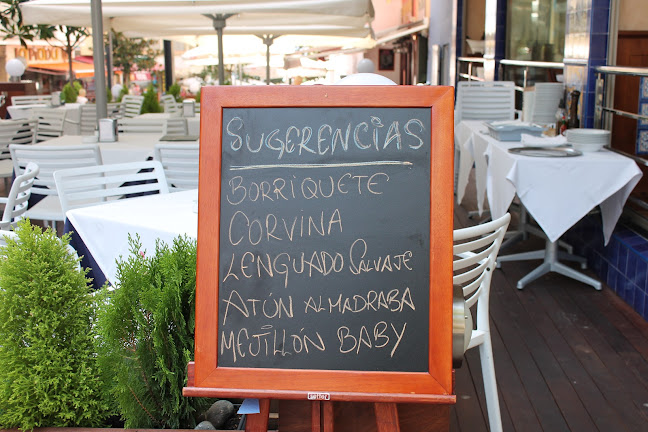 SUGERENCIAS
BORRIQUETE
CORVINA
LENGUADO SALVAJE
ATÚN ALMADRABA
MEJILLÓN BABY